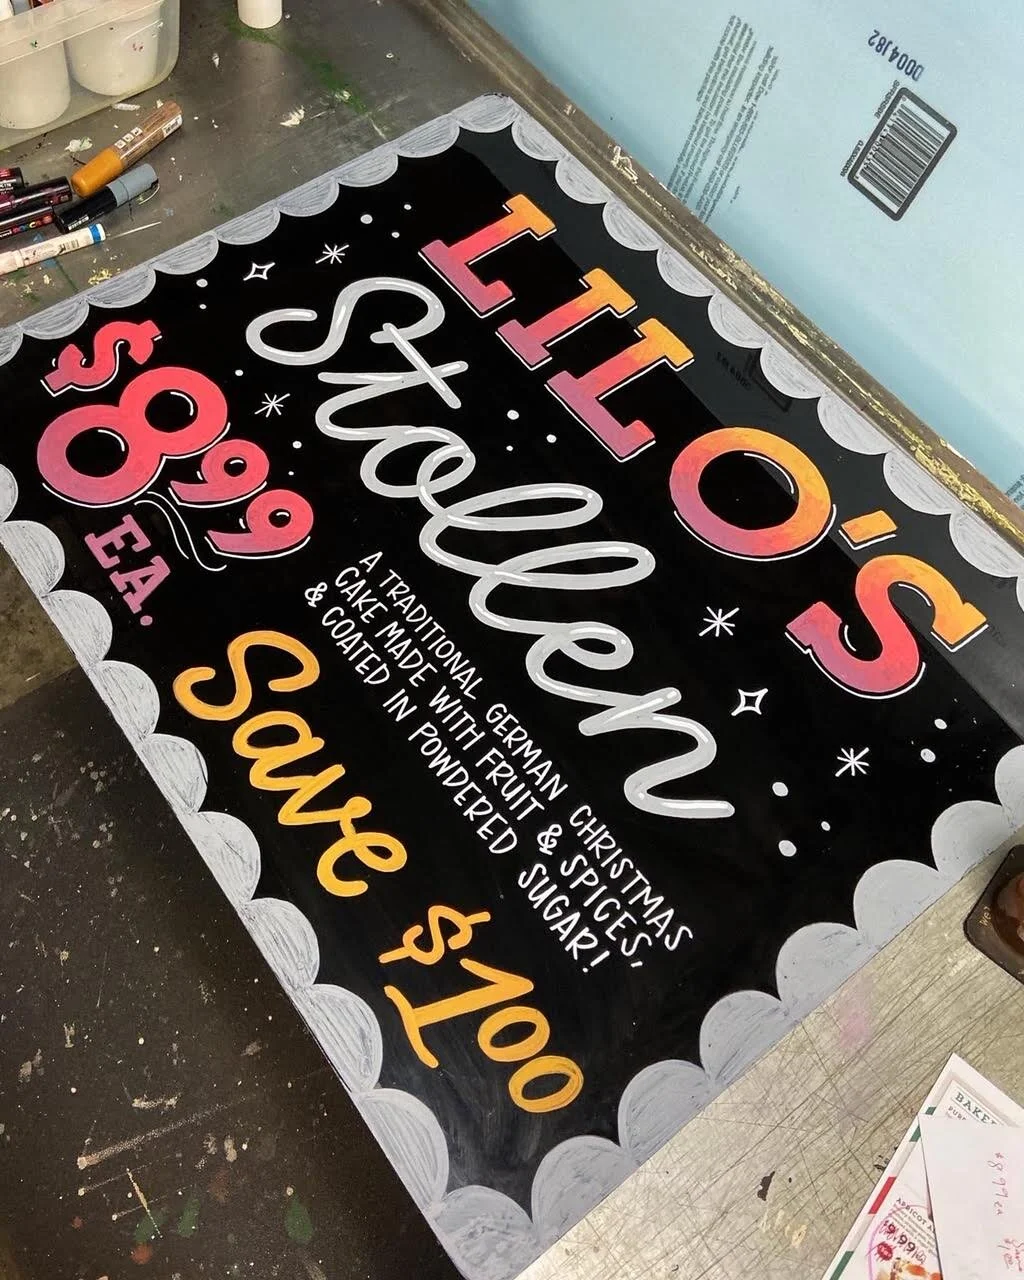 LILO'S
Stollen
A TRADITIONAL GERMAN CHRISTMAS
CAKE MADE WITH FRUIT & SPICES,
& COATED IN POWDERED SUGAR!
$8.99
EA.
Save $1.00
D004182
BAKE
APRICOT
$9.99
$8.99 ea